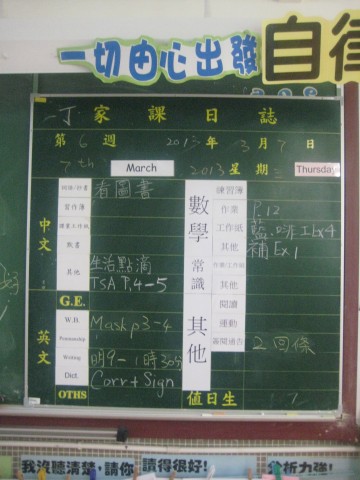 一切由心出發
自律
一丁 家課日誌
第 6 週 2013 年 3 月 7 日
7th March 2013 星期 Thursday
中文
看圖書
其他 生活點滴
TSA P.4-5
英文
G.E.
W.B. Mask p3-4
Penmanship
Writing 明9-1時30分
Dict. Corr + Sign
OTHS
數學
練習簿
作業 P.12
工作紙
其他 補 Ex.1
常識
作業/工作紙
其他
其他
閱讀
運動
簽閱通告 2回條
值日生
我沒聽清楚,請你
讀得很好!
分析力強!